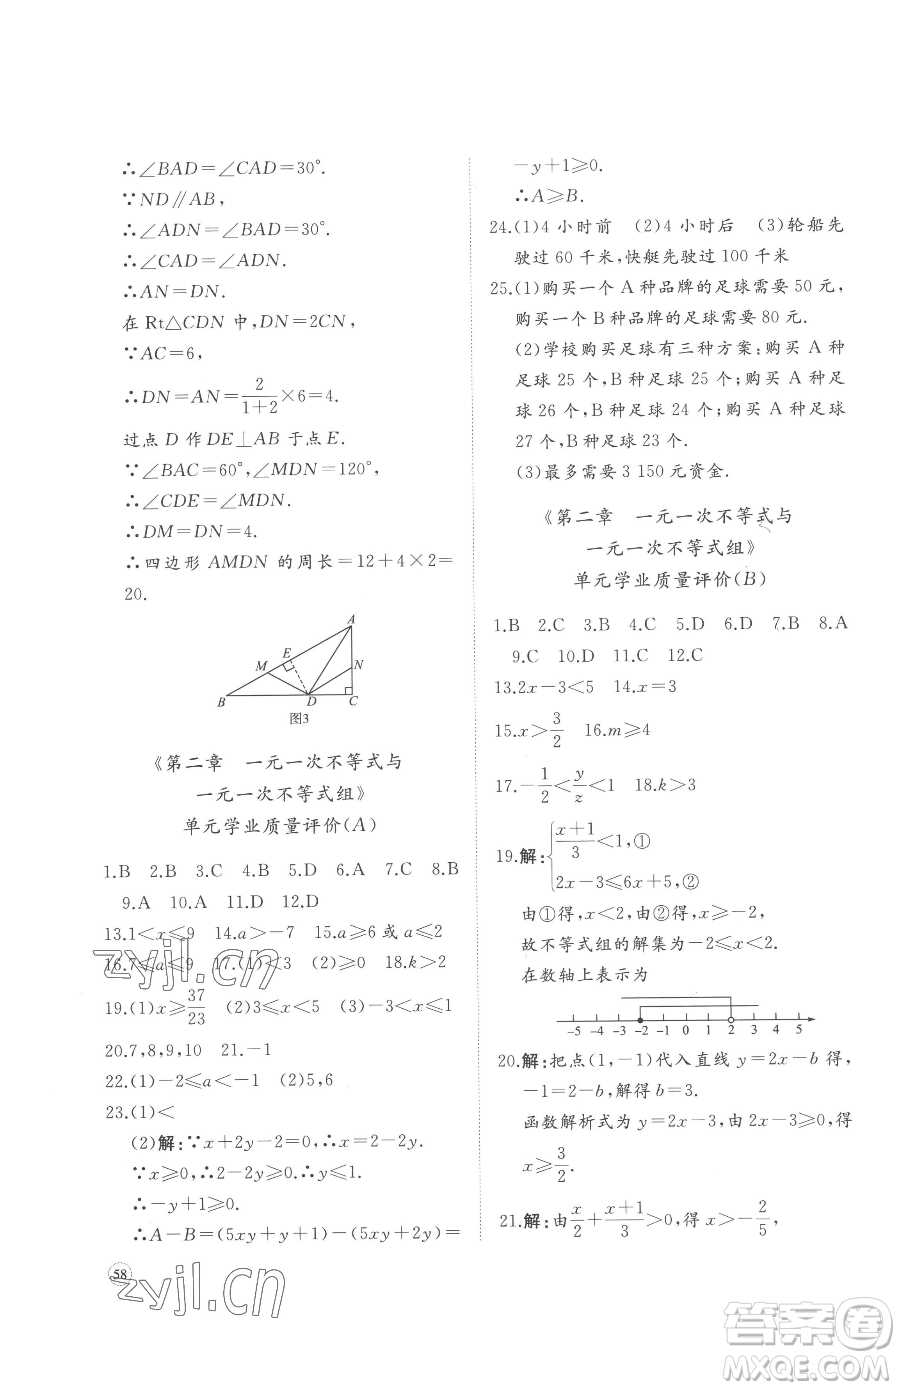 ∴∠BAD=∠CAD=30°.
∵ND∥AB,
∴∠ADN=∠BAD=30°.
∴∠CAD=∠ADN.
∴AN=DN.
在 Rt△CDN 中,DN=2CN,
∵AC=6,
∴DN=AN=2/(1+2)×6=4.
过点 D 作 DE⊥AB 于点 E.
∵∠BAC=60°,∠MDN=120°,
∴∠CDE=∠MDN.
∴DM=DN=4.
∴四边形 AMDN 的周长=12+4×2=
20.
A
E
M
N
B
D
C
图3
《第二章 一元一次不等式与
一元一次不等式组》
单元学业质量评价(A)
1.B 2.B 3.C 4.B 5.D 6.A 7.C 8.B
9.A 10.A 11.D 12.D
13.1<x≤9 14.a>-7 15.a≥6 或 a≤2
16.7≤a≤9 17.(1)<3 (2)≥0 18.k>2
19.(1)x≥37/23 (2)3≤x<5 (3)-4<x≤1
20.7,8,9,10 21.-1
22.(1)-2≤a<-1 (2)5,6
23.(1)<
(2)解:∵x+2y-2=0,∴x=2-2y.
∵x≥0,∴2-2y≥0.∴y≤1.
∴-y+1≥0.
∴A-B=(5xy+y+1)-(5xy+2y)=
58
-y+1≥0.
∴A≥B.
24.(1)4 小时前 (2)4 小时后 (3)轮船先
驶过 60 千米,快艇先驶过 100 千米
25.(1)购买一个 A 种品牌的足球需要 50 元,
购买一个 B 种品牌的足球需要 80 元.
(2)学校购买足球有三种方案:购买 A 种
足球 25 个,B 种足球 25 个;购买 A 种足球
26 个,B 种足球 24 个;购买 A 种足球
27 个,B 种足球 23 个.
(3)最多需要 3 150 元资金.
《第二章 一元一次不等式与
一元一次不等式组》
单元学业质量评价(B)
1.B 2.C 3.B 4.C 5.D 6.D 7.B 8.A
9.C 10.D 11.C 12.C
13.2x-3<5 14.x=3
15.x>3/2 16.m≥4
17.-1/2<y/z<1 18.k>3
19.解:{(x+1)/3<1,①
2x-3≤6x+5,②
由①得,x<2,由②得,x≥-2,
故不等式组的解集为-2≤x<2.
在数轴上表示为
-5 -4 -3 -2 -1 0 1 2 3 4 5
20.解:把点(1,-1)代入直线 y=2x-b 得,
-1=2-b,解得 b=3.
函数解析式为 y=2x-3,由 2x-3≥0,得
x≥3/2.
21.解:由x/2+(x+1)/3>0,得 x>-2/5,
zyjl.cn
zyjl.cn
答案圈
MXQE.COM